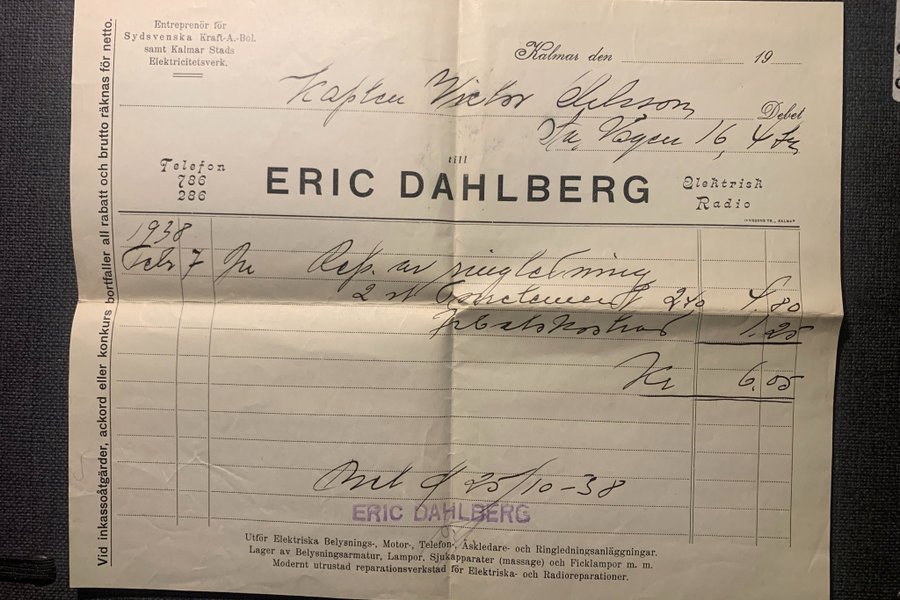 Entreprenör för
Sydsvenska Kraft-A.-Bol.
samt Kalmar Stads
Elektricitetsverk.
Kalmar den 19
Kapten Victor Nilsson
Debet
Vägen 16, 4
till
Telefon
786
286
ERIC DAHLBERG
Elektrisk
Radio
1938
Febr 7 Rep. av ringledning
2 st 2,40 4,80
Arbetskostnad 1,25
Kr 6,05
Betl d/ 25/10-38
ERIC DAHLBERG
Utför Elektriska Belysnings-, Motor-, Telefon-, Åskledare- och Ringledningsanläggningar.
Lager av Belysningsarmatur, Lampor, Sjukapparater (massage) och Ficklampor m. m.
Modernt utrustad reparationsverkstad för Elektriska- och Radioreparationer.
Vid inkassoåtgärder, ackord eller konkurs bortfaller all rabatt och brutto räknas för netto.